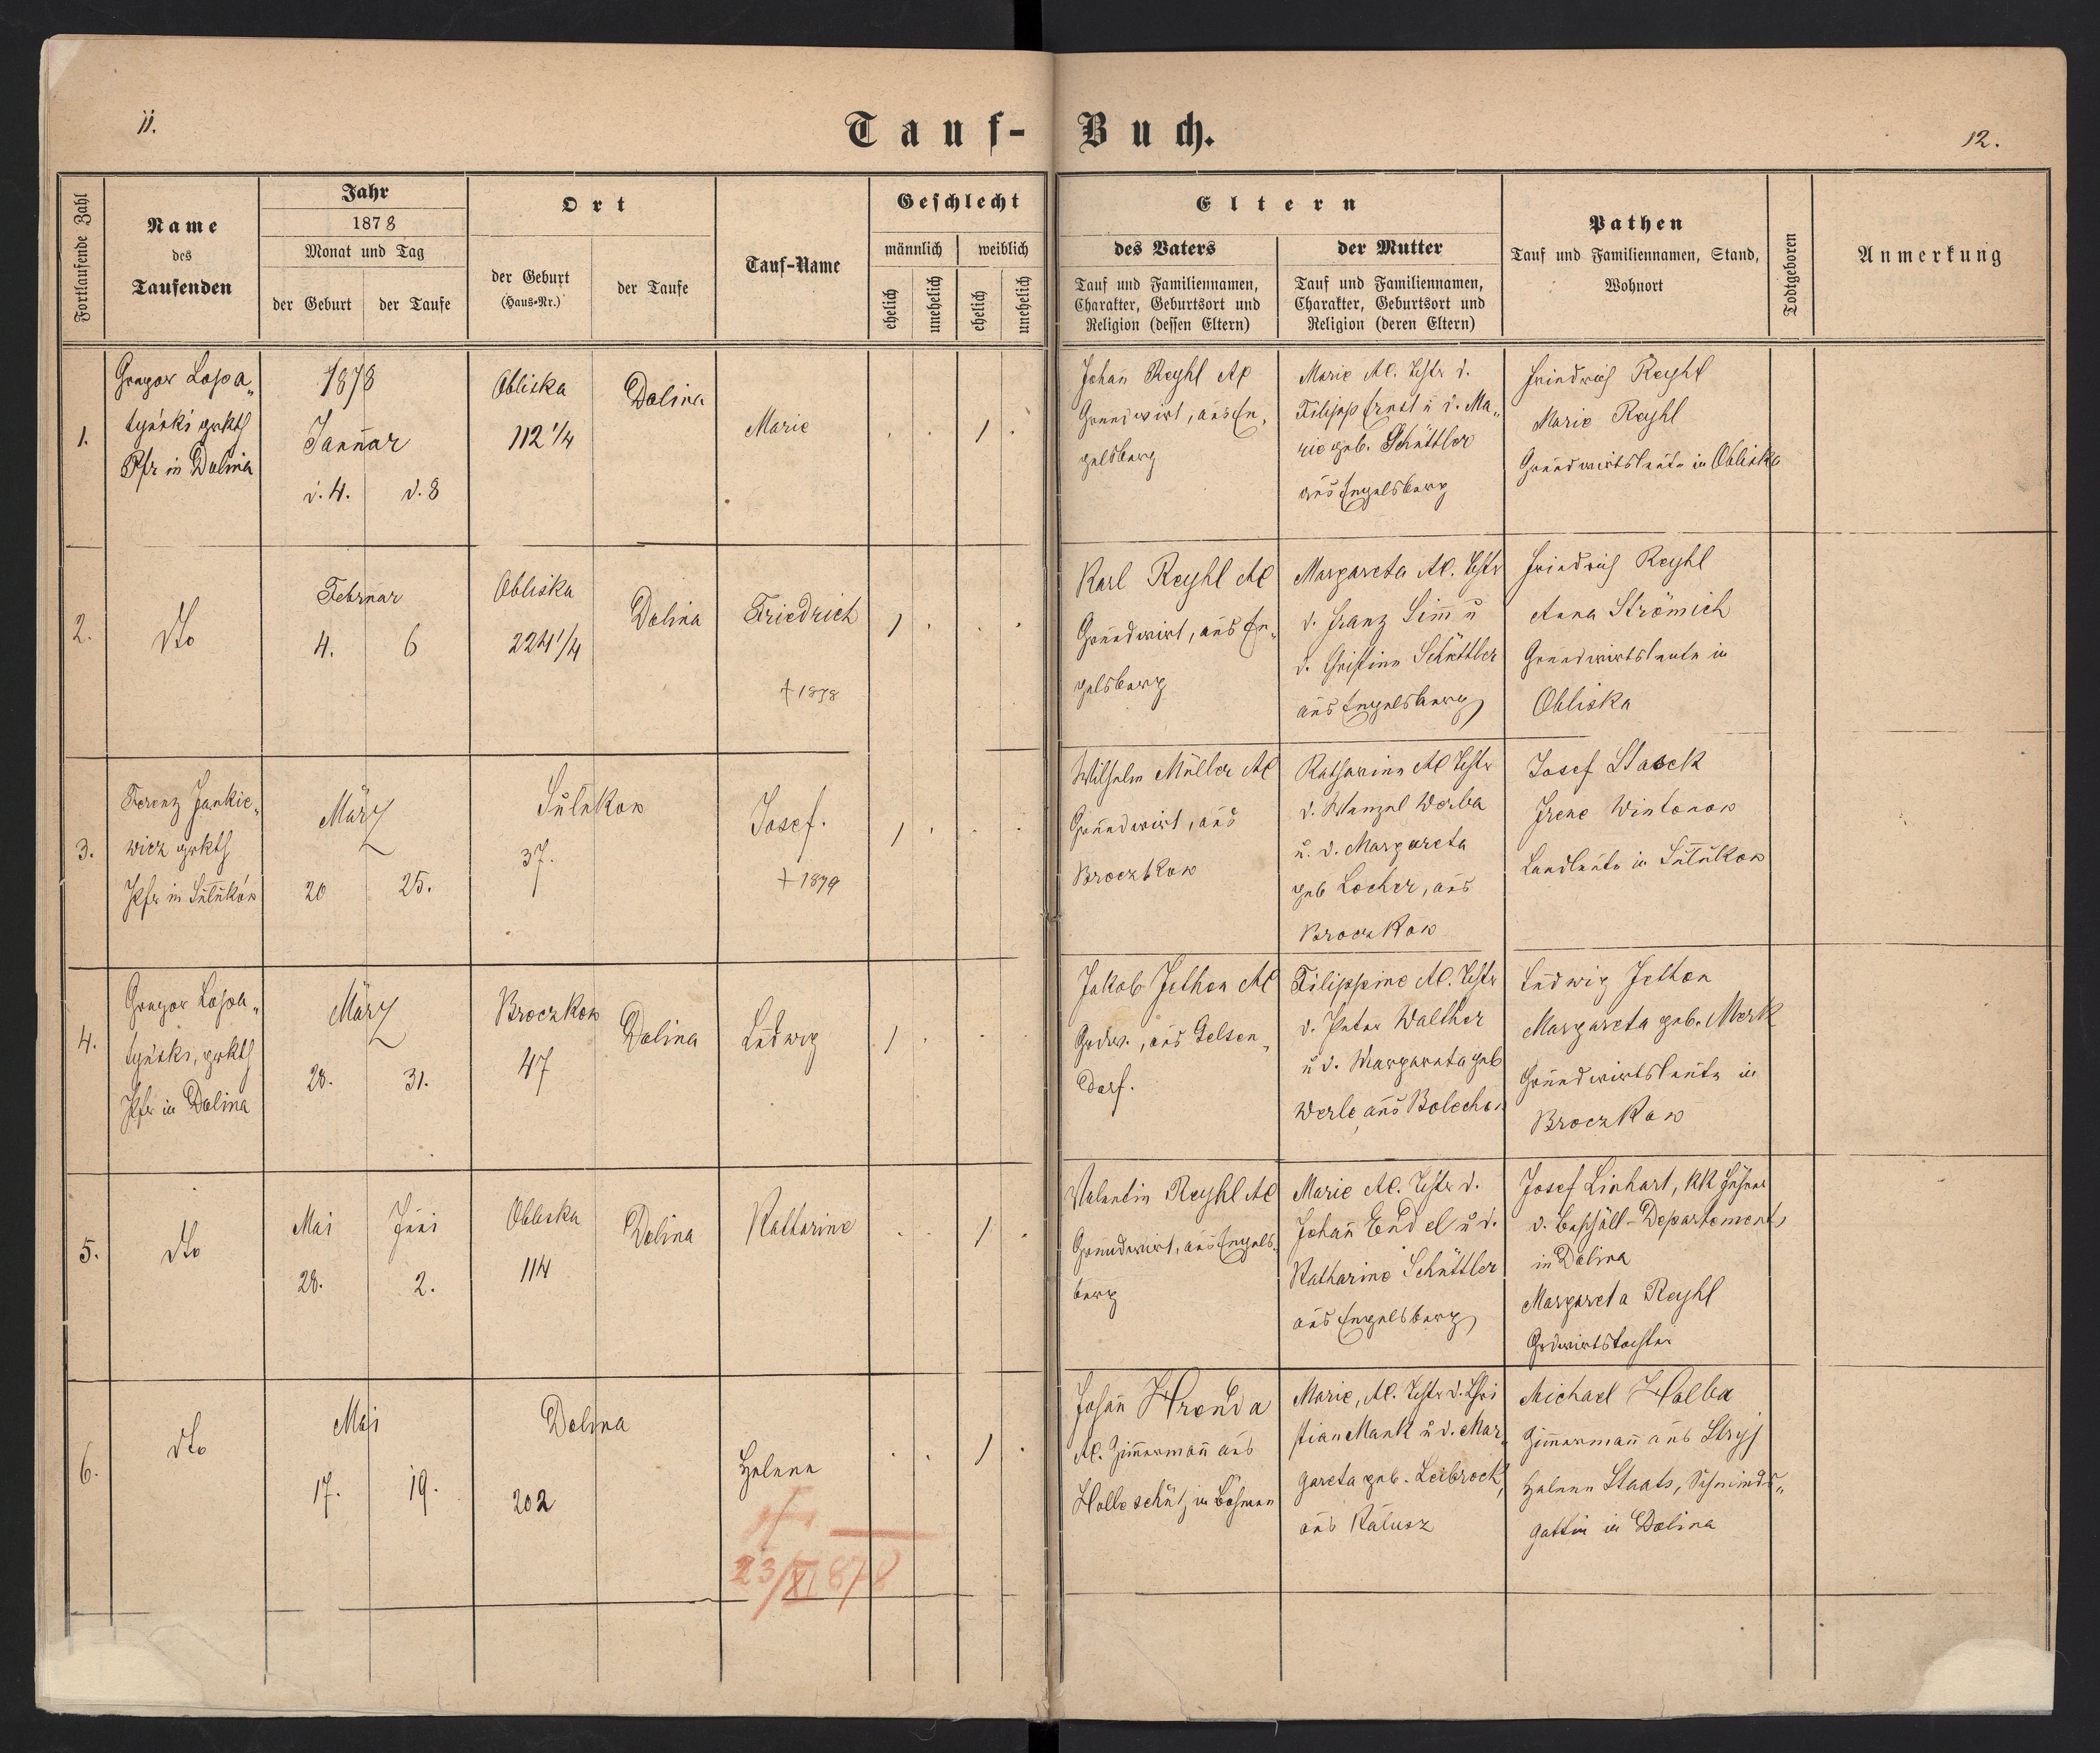 11.
Tauf-Buch.
12.
Fortlaufende Zahl
Name
des
Taufenden
Jahr
1878
Monat und Tag
der Geburt
der Taufe
Ort
der Geburt
(Haus-Nr.)
der Taufe
Tauf-Name
Geschlecht
männlich
weiblich
ehelich
unehelich
ehelich
unehelich
Eltern
des Vaters
Tauf und Familiennamen,
Charakter, Geburtsort und
Religion (dessen Eltern)
der Mutter
Tauf und Familiennamen,
Charakter, Geburtsort und
Religion (deren Eltern)
Pathen
Tauf und Familiennamen, Stand,
Wohnort
Todtgeboren
Anmerkung
1.
Gregor Lopa„
tyński grkth
Pfr in Dolina
1878
Januar
d. 4.
d. 8
Obliska
112 1/4
Dolina
Marie
1
Johann Reyhl AC
Grundwirt, aus En„
gelsberg
Marie AC. Tochtr d.
Filipp Ernst u d. Ma„
rie geb. Schüttler
aus Engelsberg
Friedrich Reyhl
Marie Reyhl
Grundwirtsleute in Obliska
2.
dto
Februar
4.
6
Obliska
224 1/4
Dolina
Friedrich
† 1878
1
Karl Reyhl AC
Grundwirt, aus En„
gelsberg
Margareta AC. Tochtr
d. Franz Simm u
d. Christine Schüttler
aus Engelsberg
Friedrich Reyhl
Anna Strömich
Grundwirtsleute in
Obliska
3.
Ferenz Jankie„
wicz grkth
Pfr in Sulukow
März
20
25.
Sulukow
37.
Josef.
† 1879
1
Wilhelm Müller AC
Grundwirt, aus
Broczkow
Katharina AC Tochtr
d. Wenzel Werba
u. d. Margareta
geb Locher, aus
Broczkow
Josef Stasek
Irene Wintonow
Landleute in Sulukow
4.
Gregor Lopa„
tyński, grkth
Pfr in Dolina
März
28.
31.
Broczkow
47
Dolina
Ludwig
1
Jakob Jethon AC
Grdw., aus Gelsen„
dorf.
Filippine AC. Tochtr
d. Peter Walther
u d. Margareta geb
Werle, aus Bolechow
Ludwig Jethon
Margareta geb. Merk
Grundwirtsleute in
Broczkow
5.
dto
Mai
28.
Juni
2.
Obliska
114
Dolina
Katharine
1
Valentin Reyhl AC
Grundwirt, aus Engels„
berg
Marie AC. Tochtr d.
Johann Endel u d.
Katharine Schüttler
aus Engelsberg
Josef Linhart, KK
Departements
in Dolina
Margareta Reyhl
Grdwirtstochter
6.
dto
Mai
17.
19.
Dolina
202
Helena
†
23/XI 878
1
Johann Hrenda
AC. Zimmermann aus
Holleschütz in Böhmen
Marie, AC. Tochtr d. Chri
stian Mank u d. Mar„
gareta geb. Leibrock,
aus Kalusz
Michael Holba
Zimmermann aus Stryj
Helena Staats, Schmieds„
gattin in Dolina